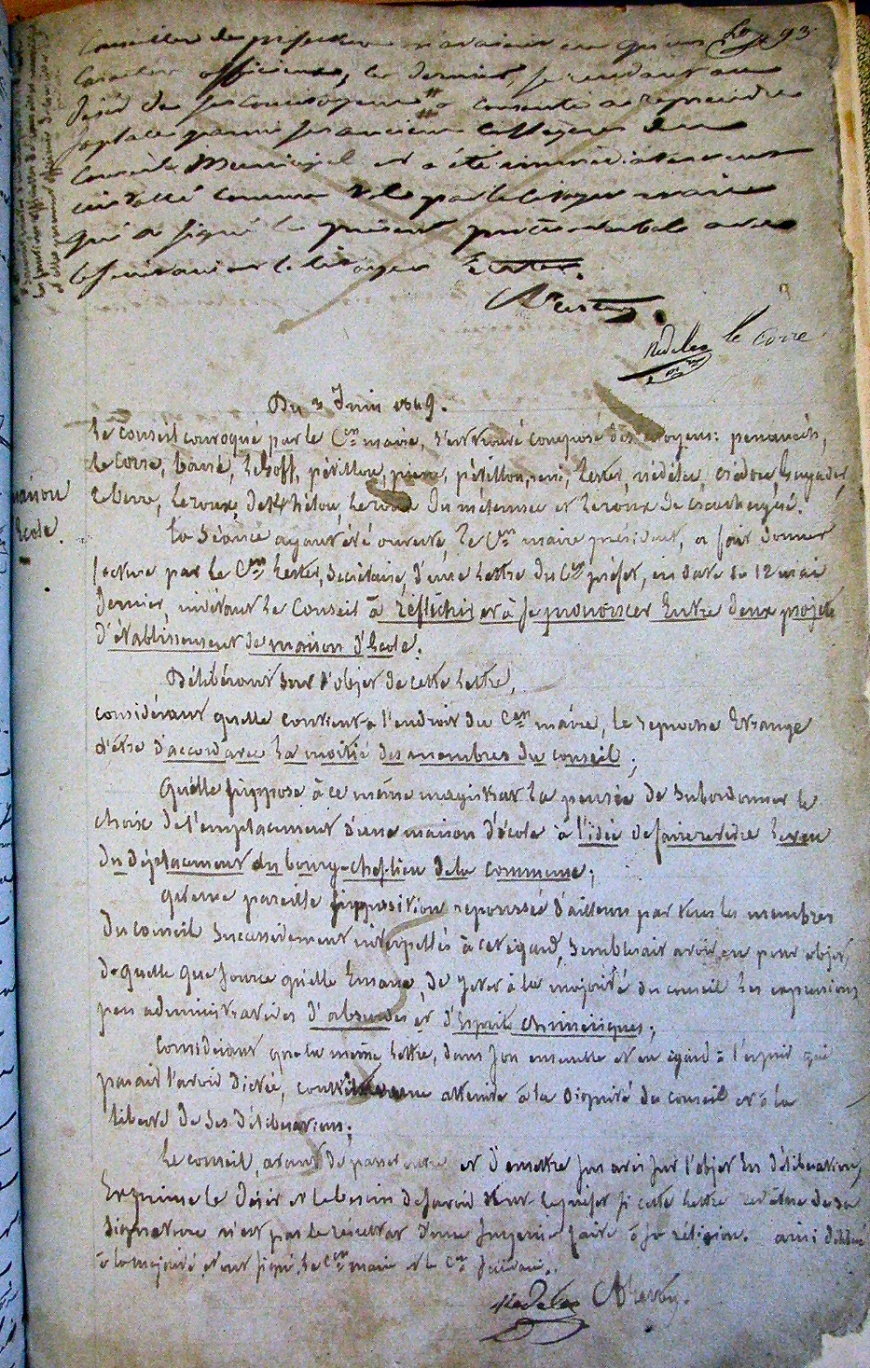 93
Conseiller de préfecture n'avaient eu qu'un
caractère officieux, ce dernier, se rendant au
désir de ses concitoyens a consenti a reprendre
sa place parmi ses anciens collègues du
Conseil Municipal et a été immédiatement
installé comme tel par le citoyen maire
qui a signé le présent procès verbal avec
le secrétaire le citoyen Lester.
Nédelec le Corre
Du 3 Juin 1849.
le conseil convoqué par le Cen maire, s'est trouvé composé des citoyens: penanech,
le Corre, Lester, nédélec,
Le roux, Le roux du mélennec et Le roux de
maison
École.
La séance ayant été ouverte, le Cen maire président, a fait donner
lecture par le Cen Lester, Secrétaire, d'une lettre du Cen préfet, en date du 12 mai
dernier, invitant le Conseil à réfléchir et à se prononcer Entre deux projets
d'établissement de maison d'École.
Délibérant sur l'objet de cette lettre,
considérant qu'elle contient à l'endroit du Cen maire, le reproche Étrange
d'être d'accord avec la moitié des membres du conseil;
Qu'elle suppose à ce même magistrat la pensée de subordonner le
choix de l'emplacement d'une maison d'école à l'idée de faire revivre le vœu
du déplacement du bourg-chef-lieu de la commune;
qu'une pareille supposition repoussée d'ailleurs par tous les membres
du conseil successivement interpellés à cet égard, semblerait avoir eu pour objet,
de quelle que source qu'elle Émane, de jeter à la majorité du conseil les expressions
peu administratives d'absurdes et d'Esprits chimériques;
Considérant que la même lettre, dans son ensemble et eu égard à l'esprit qui
parait l'avoir dictée, une atteinte à la dignité du conseil et à la
liberté de ses délibérations;
Le conseil, avant de passer outre et d'émettre son avis sur l'objet En délibération,
Exprime le désir et le besoin de savoir le préfet si cette lettre revêtue de sa
signature n'est pas le résultat d'une surprise faite à sa réligion. ainsi délibéré
à la majorité et ont signé, le Cen maire et le Cen Secrétaire.
Nédelec